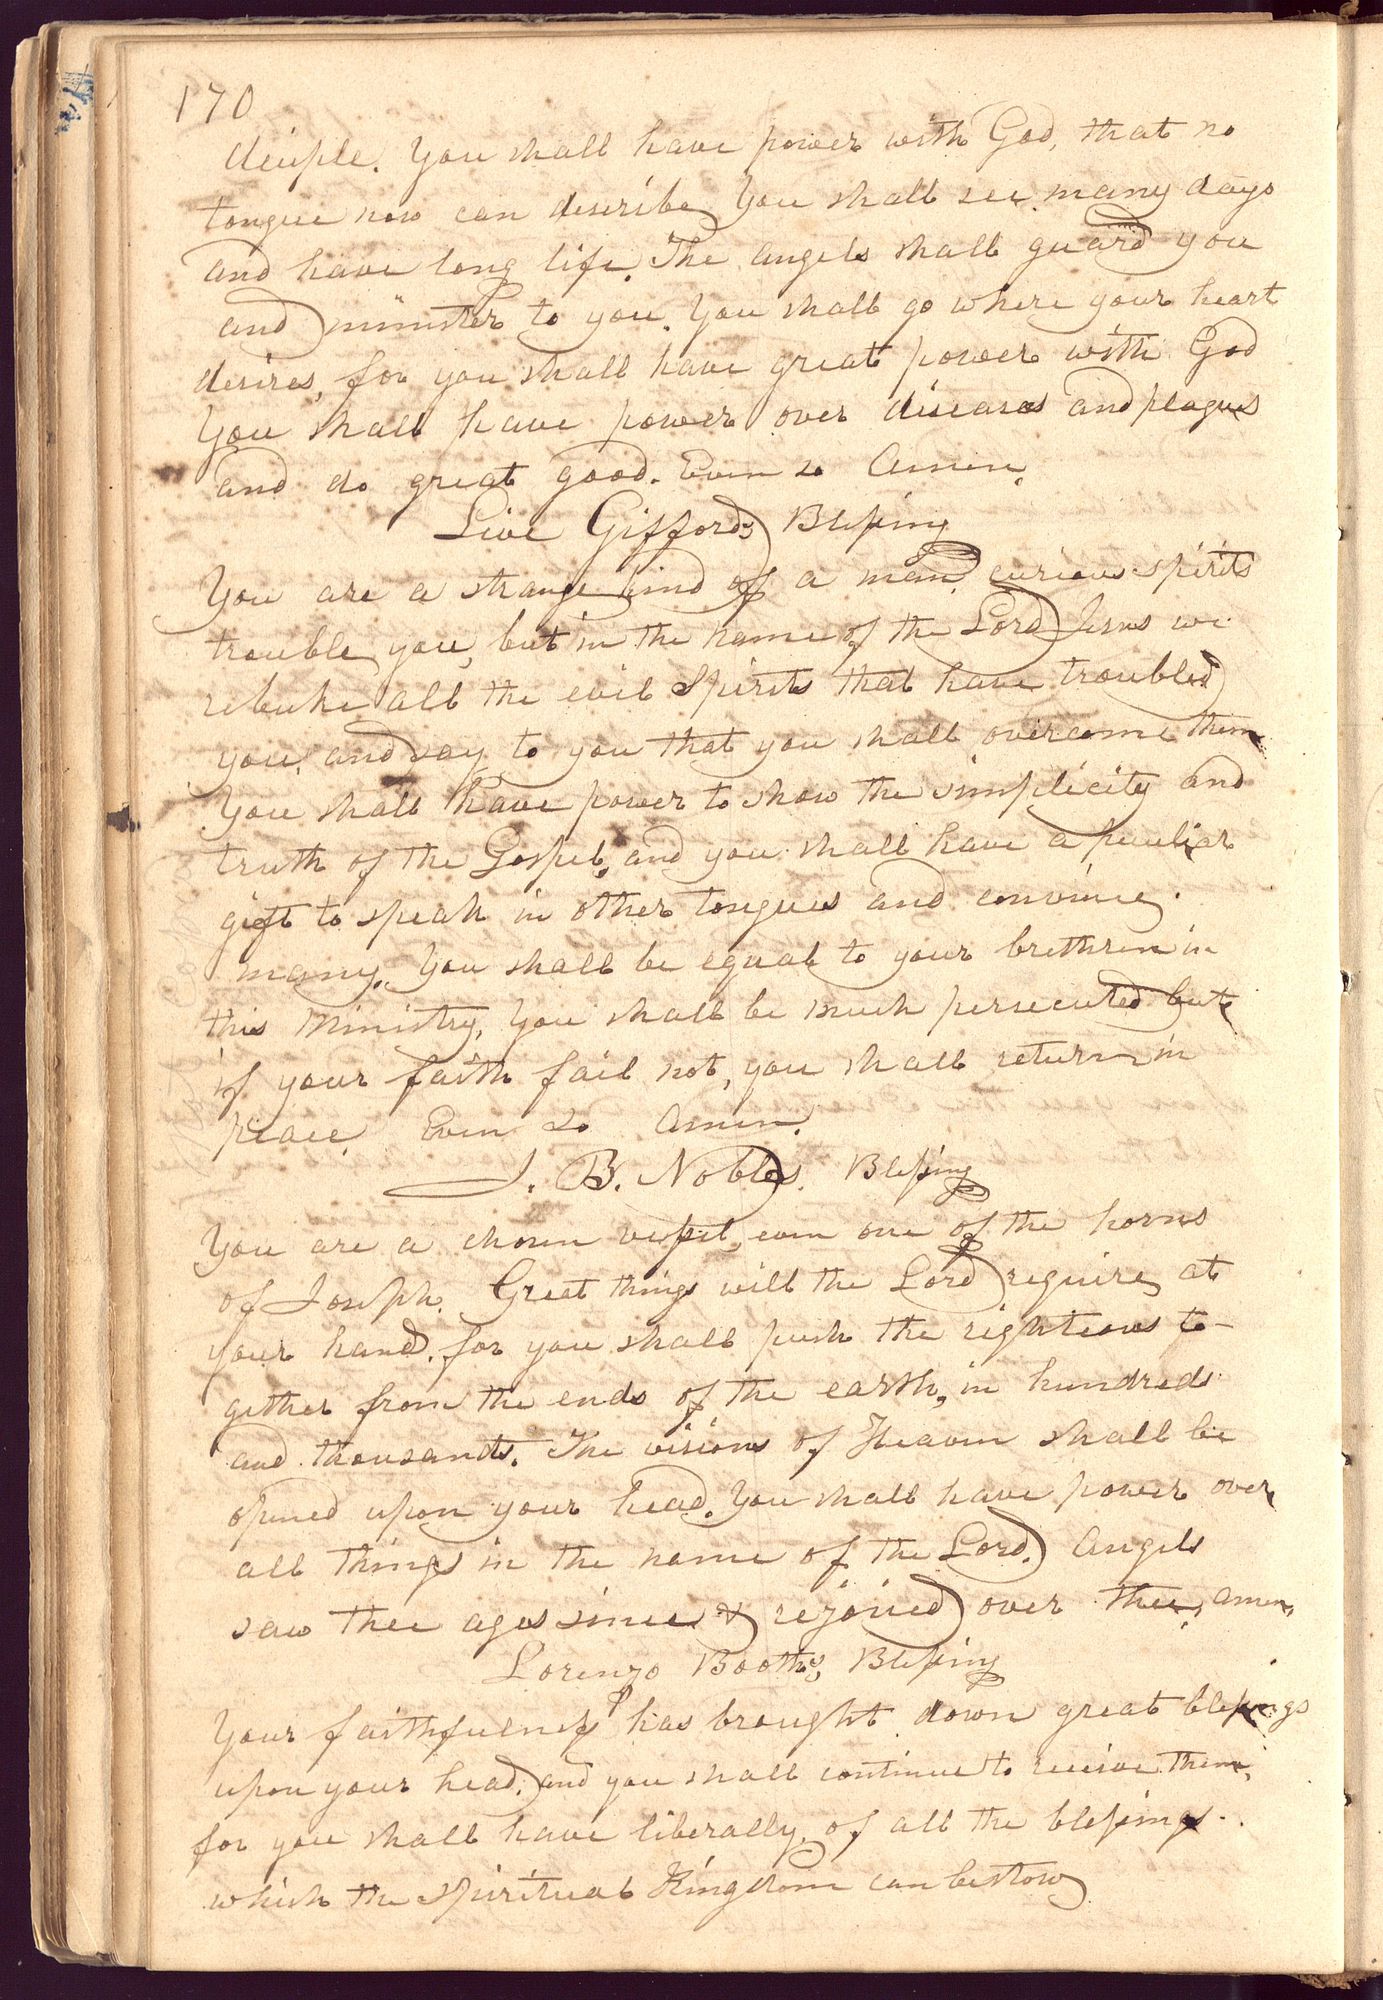 170
deciple. You shall have power with God, that no
tongue now can describe You shall see many days
and have long life. The angels shall guard you
and minister to you. You shall go where your heart
desires, for you shall have great power with God
You shall have power over diseases and plagues
and do great good. Even so Amen.
Live Giffords Blessing
You are a strange kind of a man, curious spirits
trouble you, but in the name of the Lord Jesus we
rebuke all the evil Spirits that have troubled
you, and say to you that you shall overcome them
You shall have power to show the simplicity and
truth of the Gospel, and you shall have a peculiar
gift to speak in other tongues and convince
many. You shall be equal to your brethren in
this Ministry, You shall be much persecuted but
if your faith fail not, you shall return in
peace. Even so Amen.
J. B. Nobles. Blessing
You are a chosen vessel, even one of the horns
of Joseph. Great things will the Lord require at
your hand. for you shall push the righteous to-
gether from the ends of the earth, in hundreds
and thousands. The visions of Heaven shall be
opened upon your head. You shall have power over
all things in the name of the Lord. Angels
saw thee ages since & rejoiced over thee, amen,
Lorenzo Booths, Blessing
Your faithfulness has brought down great blessings
upon your head, and you shall continue to receive them,
for you shall have liberally, of all the blessings
which the spiritual Kingdom can bestow